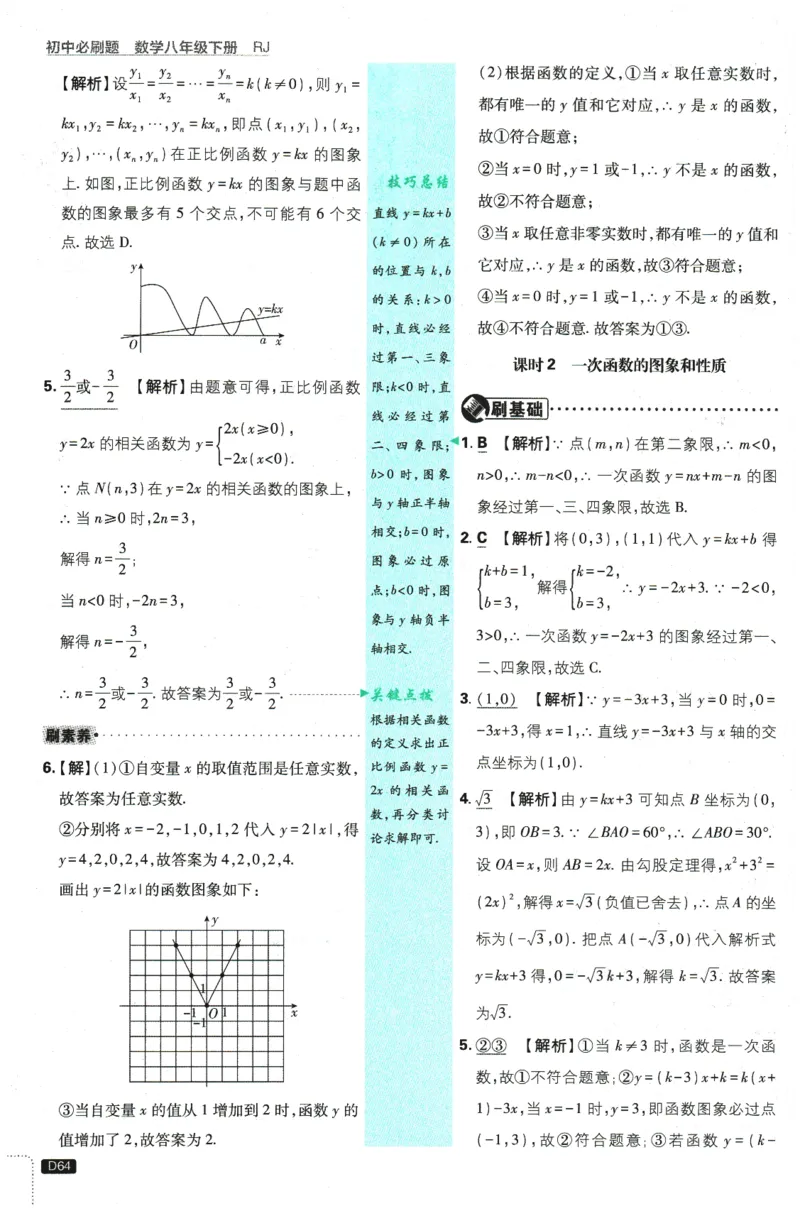 初中必刷题 数学八年级下册 RJ
【解析】设y₁/x₁=y₂/x₂=…=yₙ/xₙ=k(k≠0),则 y₁=
kx₁,y₂=kx₂,…,yₙ=kxₙ,即点(x₁,y₁),(x₂,
y₂),…,(xₙ,yₙ)在正比例函数 y=kx 的图象
上. 如图,正比例函数 y=kx 的图象与题中函
数的图象最多有 5 个交点,不可能有 6 个交
点. 故选 D.
y
y=kx
O a x
5. 3/2或-3/2 【解析】由题意可得,正比例函数
y=2x 的相关函数为 y={2x(x≥0),
-2x(x<0).
∵点 N(n,3)在 y=2x 的相关函数的图象上,
∴当 n≥0 时,2n=3,
解得 n=3/2;
当 n<0 时,-2n=3,
解得 n=-3/2,
∴n=3/2或-3/2. 故答案为3/2或-3/2.
刷素养
6.【解】(1)①自变量 x 的取值范围是任意实数,
故答案为任意实数.
②分别将 x=-2,-1,0,1,2 代入 y=2|x|,得
y=4,2,0,2,4,故答案为 4,2,0,2,4.
画出 y=2|x|的函数图象如下:
y
1
-1 O 1 x
-1
③当自变量 x 的值从 1 增加到 2 时,函数 y 的
值增加了 2,故答案为 2.
D64
技巧总结
直线 y=kx+b
(k≠0)所在
的位置与 k,b
的关系:k>0
时,直线必经
过第一、三象
限;k<0 时,直
线必经过第
二、四象限;
b>0 时,图象
与 y 轴正半轴
相交;b=0 时,
图象必过原
点;b<0 时,图
象与 y 轴负半
轴相交.
关键点拨
根据相关函数
的定义求出正
比例函数 y=
2x 的相关函
数,再分类讨
论求解即可.
(2)根据函数的定义,①当 x 取任意实数时,
都有唯一的 y 值和它对应,∴y 是 x 的函数,
故①符合题意;
②当 x=0 时,y=1 或-1,∴y 不是 x 的函数,
故②不符合题意;
③当 x 取任意非零实数时,都有唯一的 y 值和
它对应,∴y 是 x 的函数,故③符合题意;
④当 x=0 时,y=1 或-1,∴y 不是 x 的函数,
故④不符合题意. 故答案为①③.
课时 2 一次函数的图象和性质
刷基础
1. B 【解析】∵点(m,n)在第二象限,∴m<0,
n>0,∴m-n<0,∴一次函数 y=nx+m-n 的图
象经过第一、三、四象限,故选 B.
2. C 【解析】将(0,3),(1,1)代入 y=kx+b 得
{k+b=1, 解得{k=-2, ∴y=-2x+3. ∵-2<0,
b=3, b=3,
3>0,∴一次函数 y=-2x+3 的图象经过第一、
二、四象限,故选 C.
3. (1,0) 【解析】∵y=-3x+3,当 y=0 时,0=
-3x+3,得 x=1,∴直线 y=-3x+3 与 x 轴的交
点坐标为(1,0).
4. √3 【解析】由 y=kx+3 可知点 B 坐标为(0,
3),即 OB=3. ∵∠BAO=60°,∴∠ABO=30°.
设 OA=x,则 AB=2x. 由勾股定理得,x²+3²=
(2x)²,解得 x=√3(负值已舍去),∴点 A 的坐
标为(-√3,0). 把点 A(-√3,0)代入解析式
y=kx+3 得,0=-√3k+3,解得 k=√3. 故答案
为√3.
5. ②③ 【解析】①当 k≠3 时,函数是一次函
数,故①不符合题意;②y=(k-3)x+k=k(x+
1)-3x,当 x=-1 时,y=3,即函数图象必过点
(-1,3),故②符合题意;③若函数 y=(k-